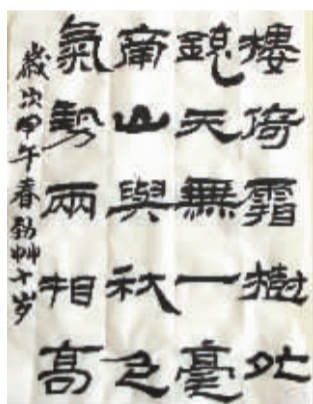 樓倚霜樹外
鏡天無一毫
南山與秋色
氣勢兩相高
歲次甲午春劲艸十岁